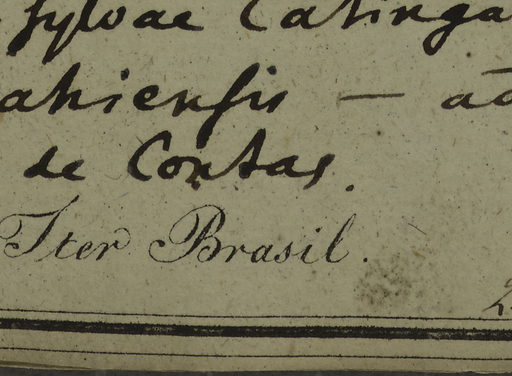 Sylvae Catinga
ahiensis — ad
de Contas.
Iter Brasil.